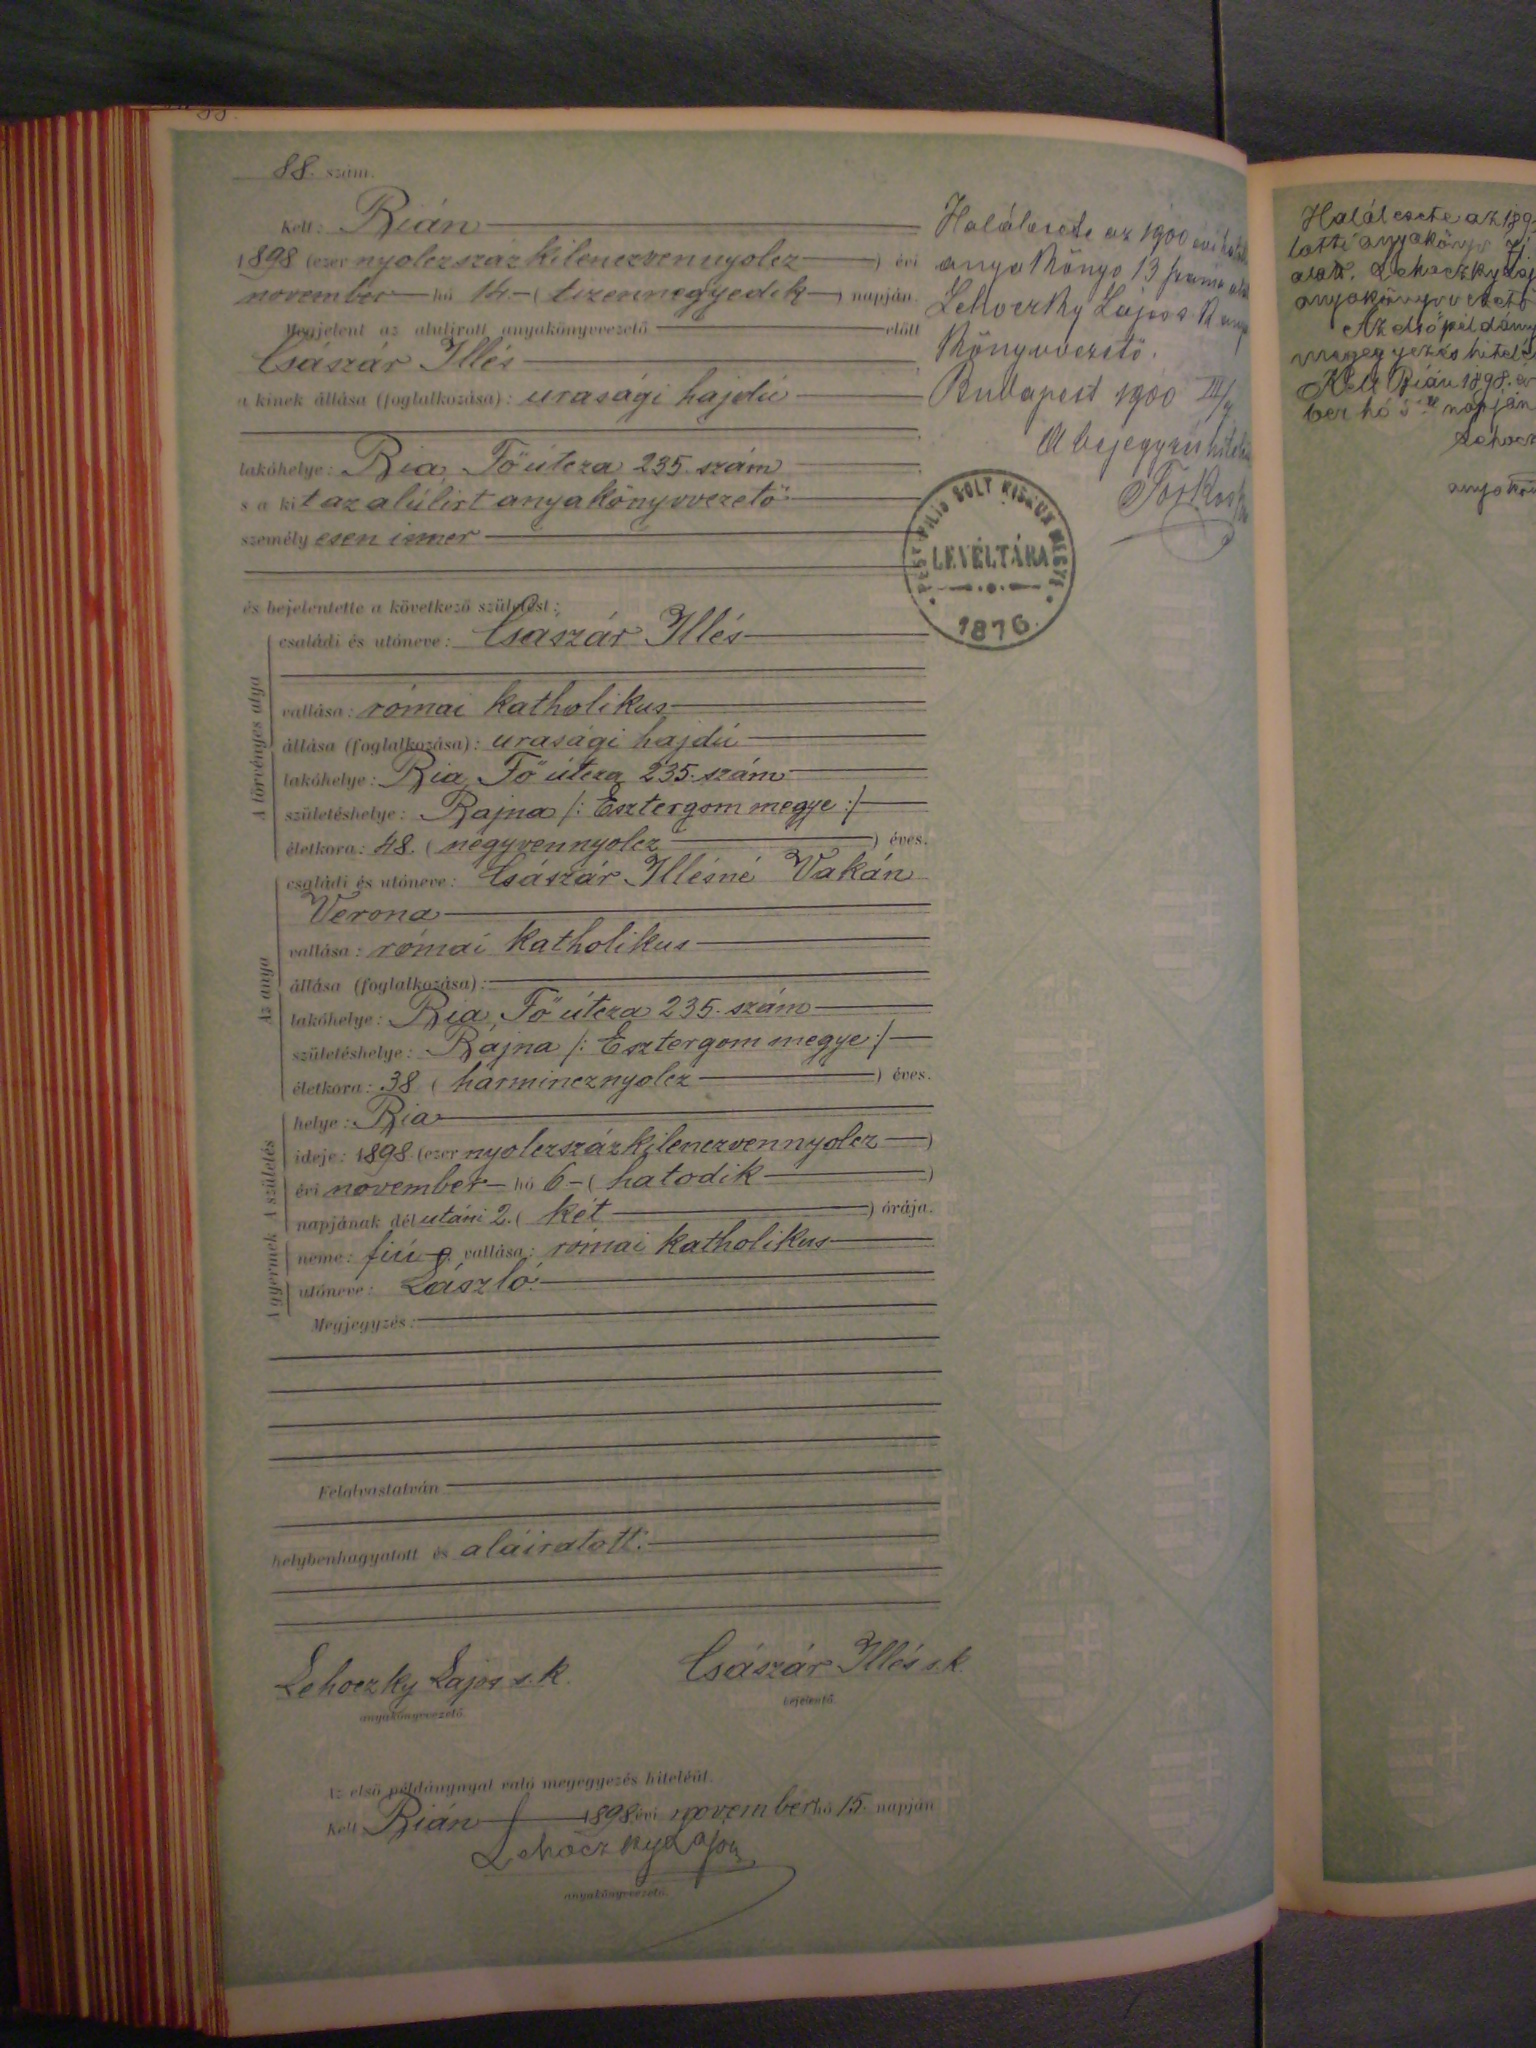 88. szám.
Kelt: Bián
1898 (ezer nyolczszázkilenczvennyolcz) évi
november hó 14 (tizennegyedik) napján.
Megjelent az alulirott anyakönyvvezető előtt
Császár Illés
a kinek állása (foglalkozása): urasági hajdú
lakóhelye: Bia, Fő útcza 235. szám
s a kit az alúlirt anyakönyvvezető
személyesen ismer
és bejelentette a következő születést:
A törvényes atya
családi és utóneve: Császár Illés
vallása: római katholikus
állása (foglalkozása): urasági hajdú
lakóhelye: Bia, Fő útcza 235. szám
születéshelye: Bajna /: Esztergom megye :/
életkora: 48. (negyvennyolcz) éves.
Az anya
családi és utóneve: Császár Illésné Vakán
Verona
vallása: római katholikus
állása (foglalkozása):
lakóhelye: Bia, Fő útcza 235. szám
születéshelye: Bajna /: Esztergom megye :/
életkora: 38 (harmincznyolcz) éves.
A születés
helye: Bia
ideje: 1898 (ezer nyolczszázkilenczvennyolcz)
évi november hó 6 (hatodik)
napjának délutáni 2. (két) órája.
A gyermek
neme: fiú vallása: római katholikus
utóneve: László.
Megjegyzés:
Felolvastatván
helybenhagyatott és aláiratott.
Lehoczky Lajos s. k.
anyakönyvvezető.
Császár Illés s. k.
bejelentő.
Az első példánynyal való megegyezés hiteléül.
Kelt Bián 1898. évi november hó 15. napján
Lehoczky Lajos
anyakönyvvezető.
Haláleseta az 1900 évi
anyakönyv 13 száma
Lehoczky Lajos s. k. anya
könyvvezető.
Budapest 1900 III/
A bejegyzés
PEST PILIS SOLT KISKUN MEGYE
LEVÉLTÁRA
1876.
Halálesete az 189
lotti anyakönyv
alatt. Lehoczky Laj
anyakönyvvezető
Az első példány
megegyezés hitelé
Kelt Bián 1898. év
ber hó napján
Lehocz
anyakön